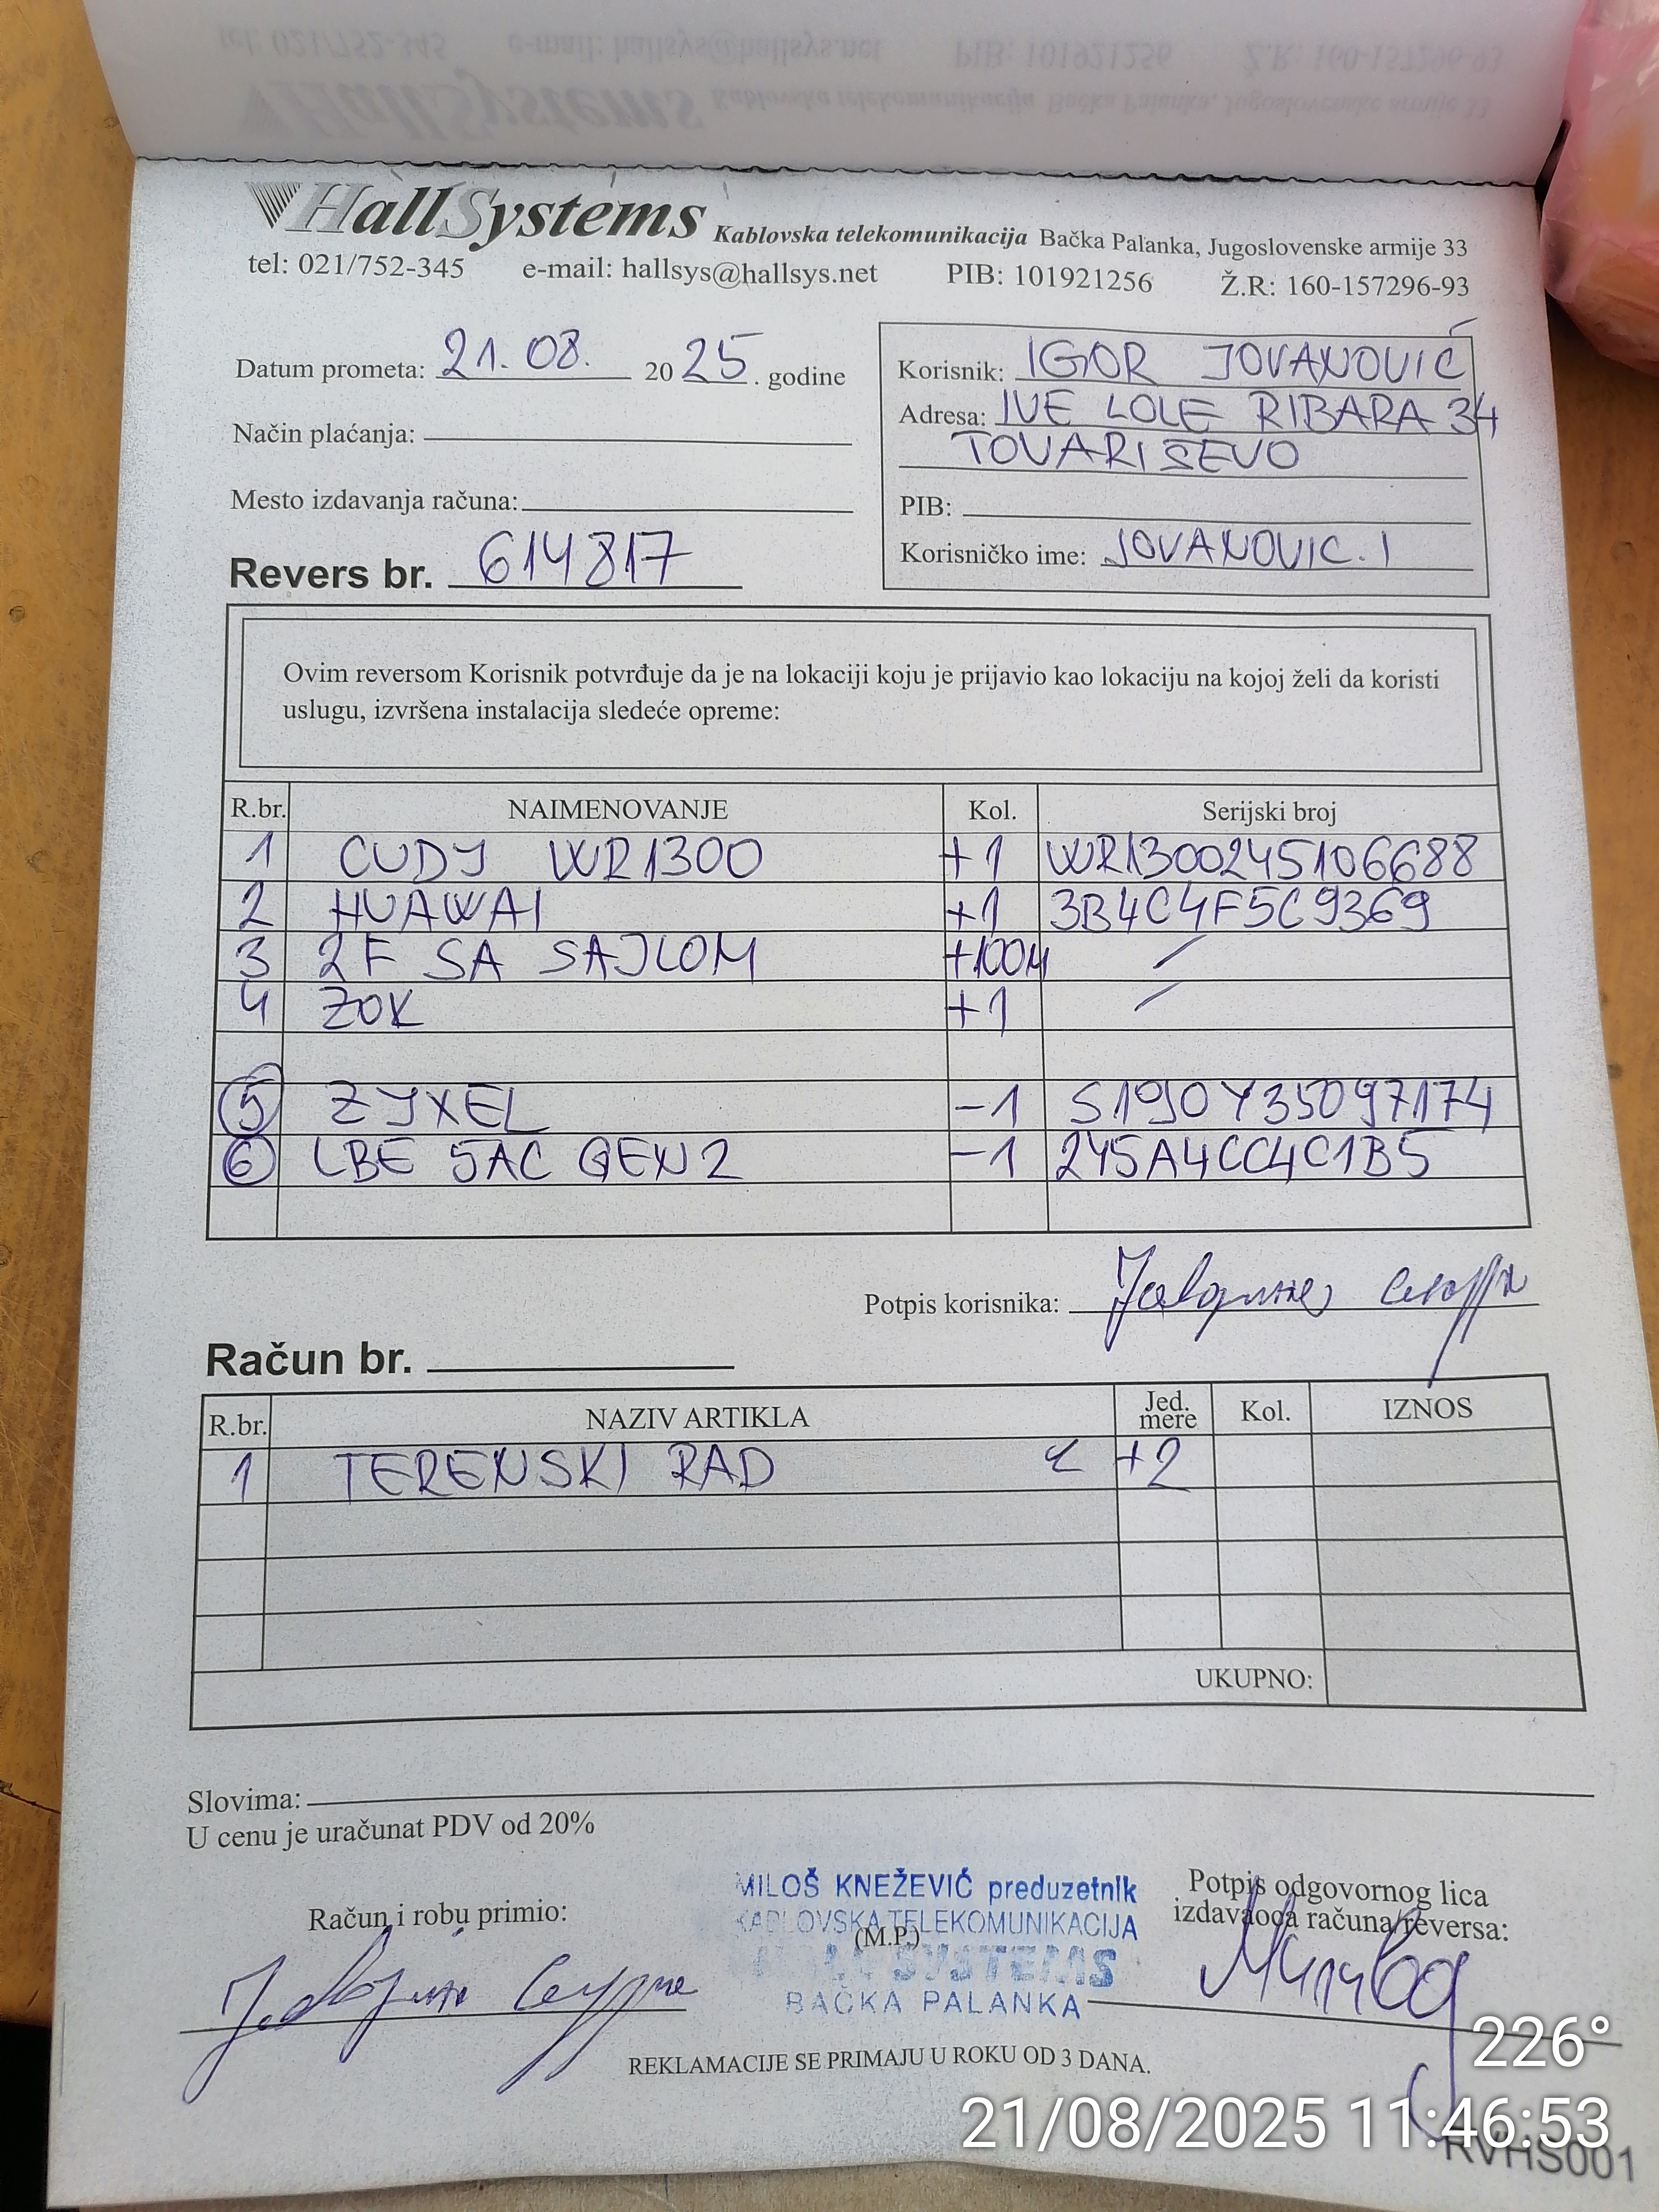 HallSystems Kablovska telekomunikacija Bačka Palanka, Jugoslovenske armije 33
tel: 021/752-345 e-mail: hallsys@hallsys.net PIB: 101921256 Ž.R: 160-157296-93
Datum prometa: 21.08. 2025. godine
Način plaćanja:
Mesto izdavanja računa:
Revers br. 614817
Korisnik: IGOR JOVANOVIĆ
Adresa: IVE LOLE RIBARA 34
TOVARISEVO
PIB:
Korisničko ime: JOVANOVIC.I
Ovim reversom Korisnik potvrđuje da je na lokaciji koju je prijavio kao lokaciju na kojoj želi da koristi
uslugu, izvršena instalacija sledeće opreme:
R.br. NAIMENOVANJE Kol. Serijski broj
1 CUDY WR1300 +1 WR1300245106688
2 HUAWAI +1 3B4C4F5C9369
3 2F SA SAJLOM +100M /
4 ZOK +1 /
5 ZYXEL -1 S190Y35097174
6 LBE 5AC GEN2 -1 245A4CC4C1B5
Potpis korisnika:
Račun br.
R.br. NAZIV ARTIKLA Jed. mere Kol. IZNOS
1 TERENSKI RAD +2
UKUPNO:
Slovima:
U cenu je uračunat PDV od 20%
Račun i robu primio:
MILOŠ KNEŽEVIĆ preduzetnik
KABLOVSKA TELEKOMUNIKACIJA
(M.P.)
HALL SYSTEMS
BAČKA PALANKA
Potpis odgovornog lica
izdavaoca računa/reversa:
REKLAMACIJE SE PRIMAJU U ROKU OD 3 DANA.
226°
21/08/2025 11:46:53
RVHS001